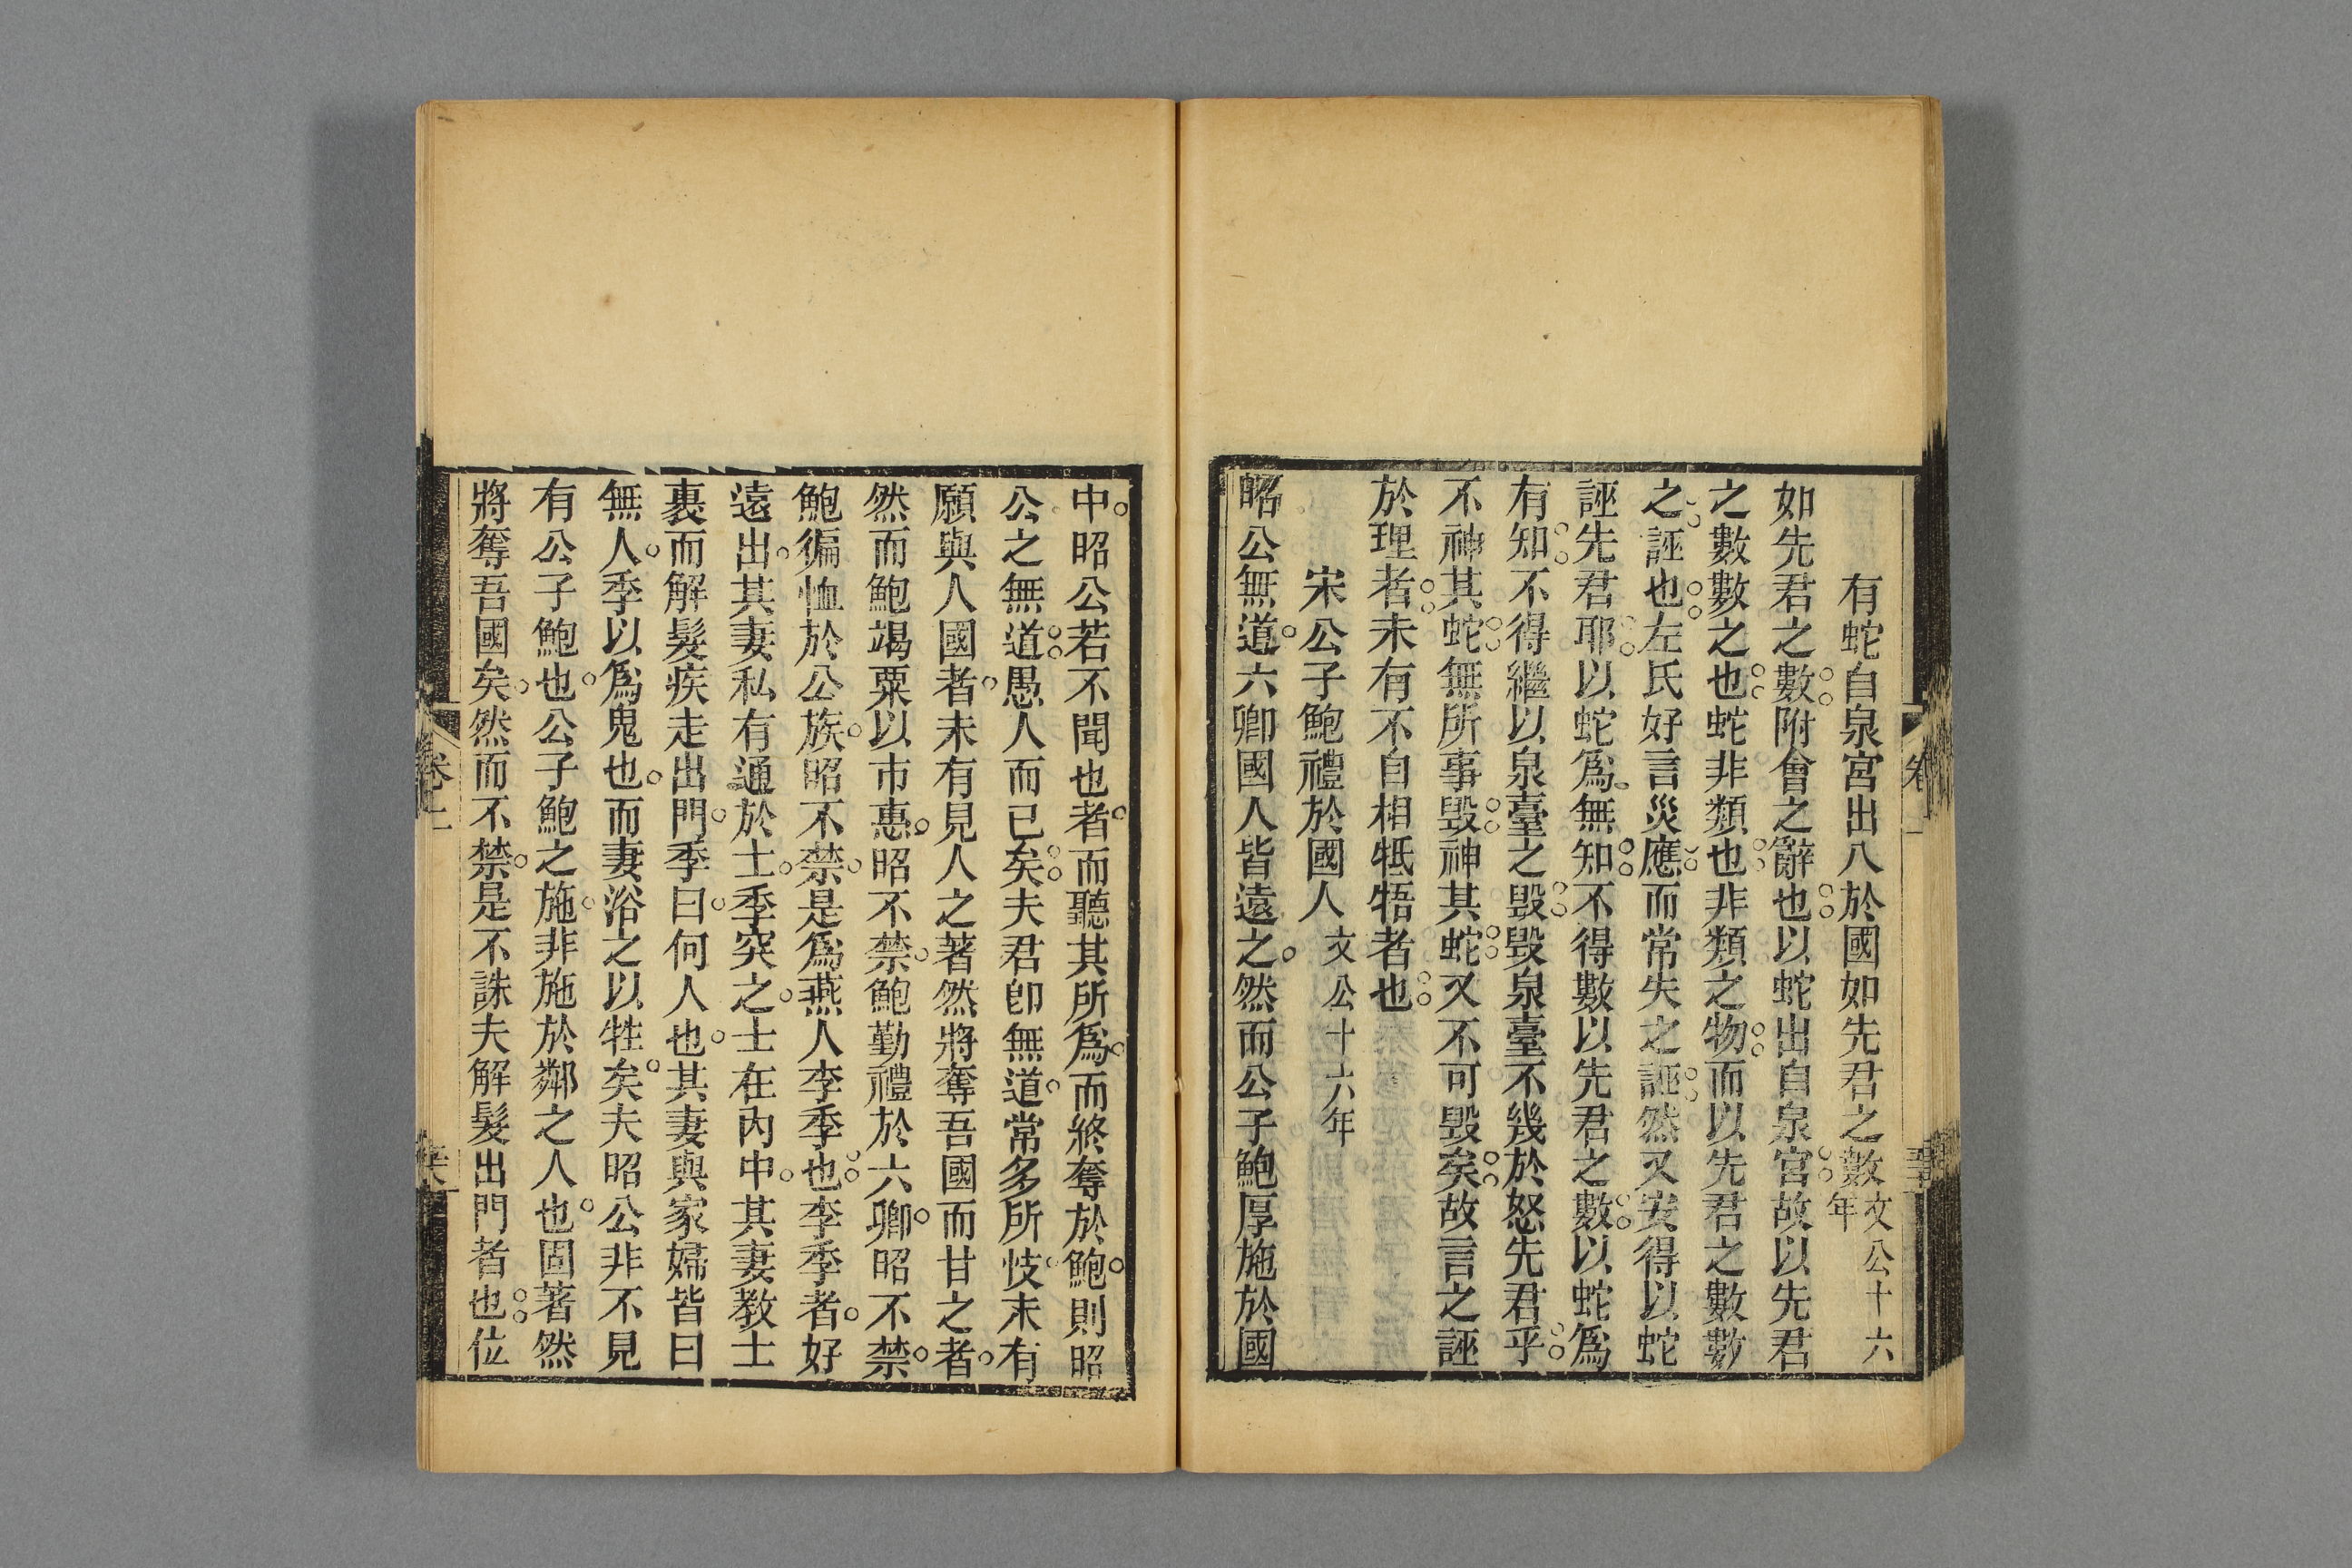 有蛇自泉宮出入於國如先君之數文公十六年
如先君之數附會之辭也以蛇出自泉宮故以先君
之數數之也蛇非類也非類之物而以先君之數數
之誣也左氏好言災應而常失之誣然又安得以蛇
誣先君耶以蛇爲無知不得數以先君之數以蛇爲
有知不得繼以泉臺之毀毀泉臺不幾於怒先君乎
不神其蛇無所事毀神其蛇又不可毀矣故言之誣
於理者未有不自相牴牾者也
宋公子鮑禮於國人文公十六年
昭公無道六卿國人皆遠之然而公子鮑厚施於國
中昭公若不聞也者而聽其所爲而終奪於鮑則昭
公之無道愚人而已矣夫君卽無道常多所忮未有
願與人國者未有見人之著然將奪吾國而甘之者
然而鮑竭粟以市惠昭不禁鮑勤禮於六卿昭不禁
鮑徧恤於公族昭不禁是爲燕人李季也李季者好
遠出其妻私有通於士季突之士在內中其妻教士
裹而解髮疾走出門季曰何人也其妻與家婦皆曰
無人季以爲鬼也而妻浴之以牲矣夫昭公非不見
有公子鮑也公子鮑之施非施於鄰之人也固著然
將奪吾國矣然而不禁是不誅夫解髮出門者也位
卷上